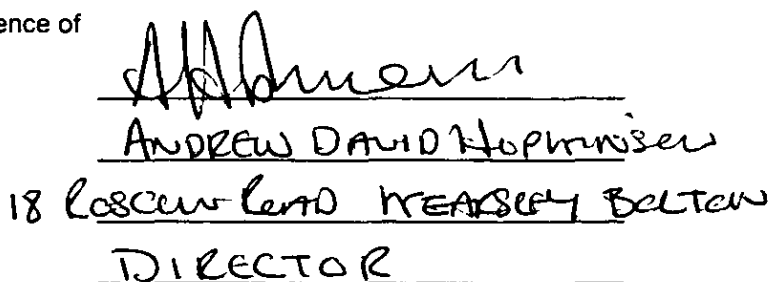 ence of
ANDREW DAVID Hopkinson
18 Roscow Road KEARSLEY BOLTON
DIRECTOR